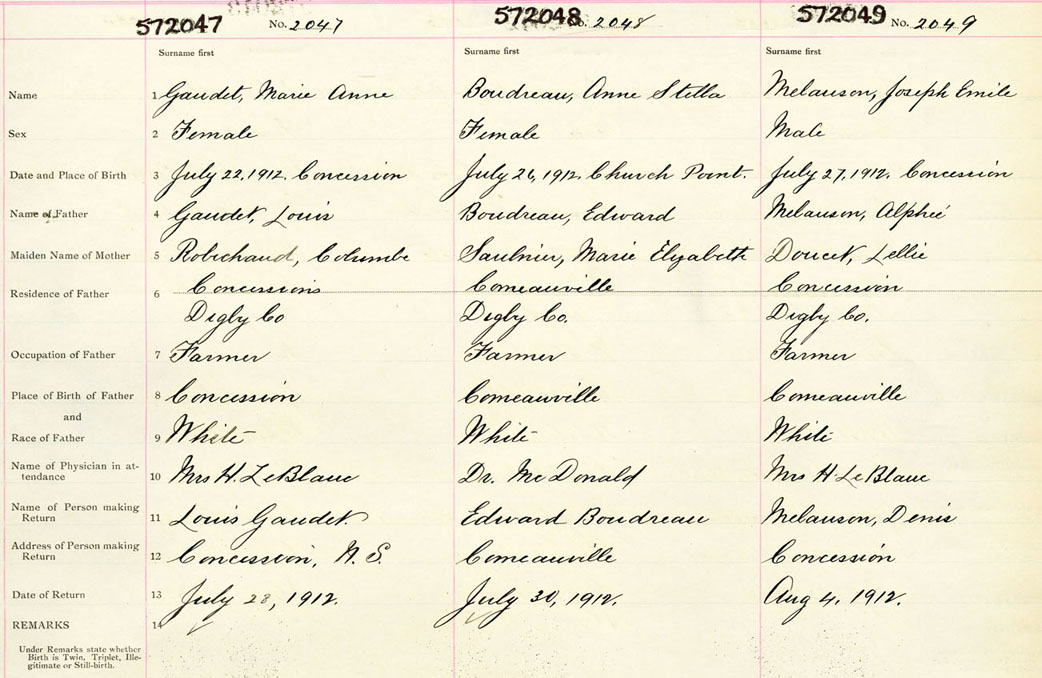 572047 No. 2047 572048 No. 2048 572049 No. 2049
Surname first Surname first Surname first
Name 1 Gaudet, Marie Anne Boudreau, Anne Stella Melanson, Joseph Emile
Sex 2 Female Female Male
Date and Place of Birth 3 July 22, 1912. Concession July 26, 1912. Church Point. July 27, 1912. Concession
Name of Father 4 Gaudet, Louis Boudreau, Edward Melanson, Alphée
Maiden Name of Mother 5 Robichaud, Columbe Saulnier, Marie Elizabeth Doucet, Lellie
Residence of Father 6 Concessions Comeauville Concession
Digby Co Digby Co. Digby Co.
Occupation of Father 7 Farmer Farmer Farmer
Place of Birth of Father 8 Concession Comeauville Comeauville
and
Race of Father 9 White White White
Name of Physician in at-
tendance 10 Mrs H. LeBlanc Dr. McDonald Mrs H. LeBlanc
Name of Person making
Return 11 Louis Gaudet Edward Boudreau Melanson, Denis
Address of Person making
Return 12 Concession, N.S. Comeauville Concession
Date of Return 13 July 28, 1912. July 30, 1912. Aug 4, 1912.
REMARKS 14
Under Remarks state whether
Birth is Twin, Triplet, Ille-
gitimate or Still-birth.